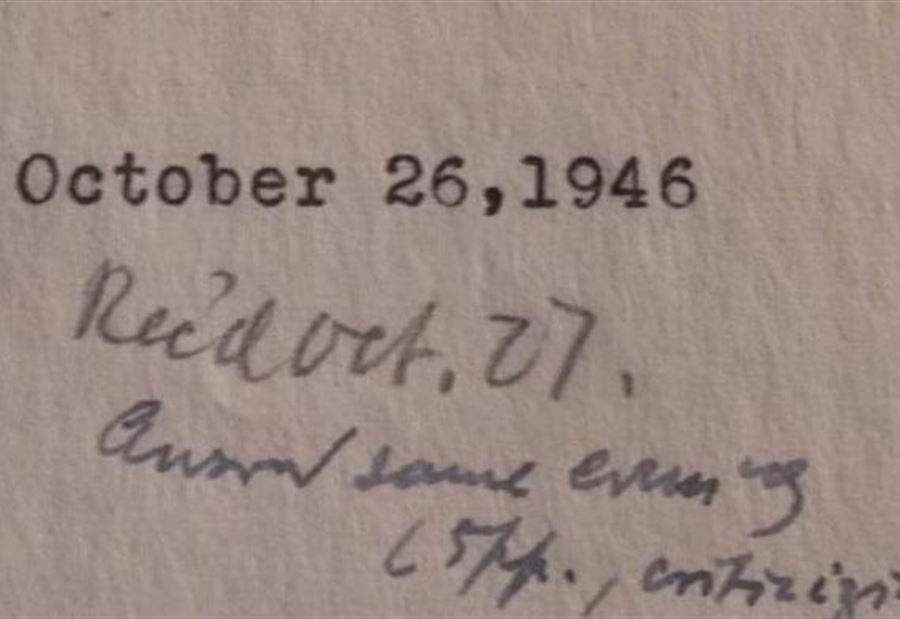 October 26,1946
Rec'd Oct. 27.
Answd same evening
(5pp., criticizi